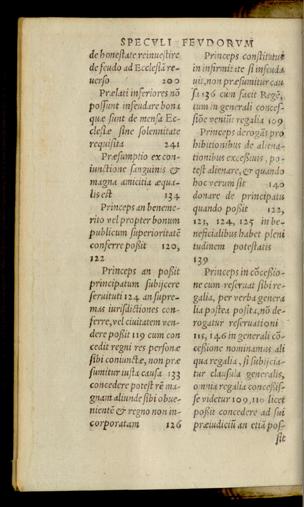 SPECVLI FEVDORVM
de honestate reinuestire
de feudo ad Ecclesiã re-
uerso 200
Prælati inferiores nõ
possunt infeudare bona
quæ sunt de mensa Ec-
clesiæ sine solennitate
requisita 241
Præsumptio ex con-
iunctione sanguinis &
magna amicitia æqua-
lis est 134
Princeps an beneme-
rito vel propter bonum
publicum superioritatẽ
conferre possit 120,
122
Princeps an possit
principatum subijcere
seruituti 124 an supre-
mas iurisdictiones con-
ferre, vel ciuitatem ven-
dere possit 119 cum con
cedit regni res personæ
sibi coniunctæ, non præ
sumitur iusta causa 133
concedere potest rẽ ma-
gnam aliunde sibi obue-
nientẽ & regno non in-
corporatam 126
Princeps constitutus
in infirmitate si infeuda
uit, non præsumitur cau
sa 136 cùm facit Regẽ,
tum in generali conces-
siõe veniũt regalia 109
Princeps derogãs pro
hibitionibus de aliena-
tionibus excessiuis, po-
test alienare, & quando
hoc verum sit 140
donare de principatu
quando possit 122,
123, 124, 125 in be-
neficialibus habet pleni
tudinem potestatis
139
Princeps in cõcessio-
ne cum reseruat sibi re-
galia, per verba genera
lia postea posita, nõ de-
rogatur reseruationi
115, 146 in generali cõ-
cessione nominamus ali
qua regalia, si subijcia-
tur clausula generalis,
omnia regalia concessis-
se videtur 109, 110 licet
possit concedere ad sui
præiudiciũ an etiã pos-
sit